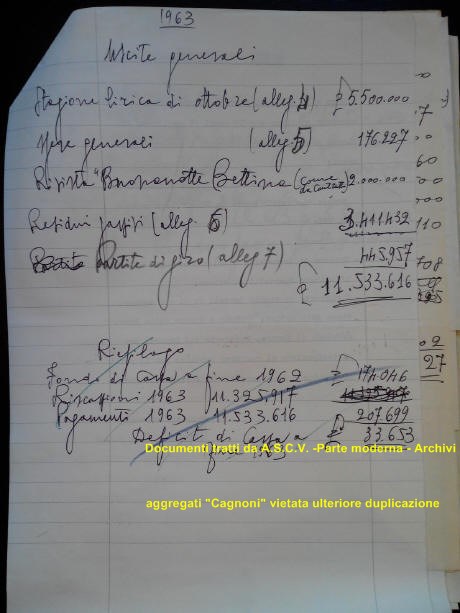 1963
Uscite generali
Stagione lirica di ottobre (alleg. 4) £ 5.500.000
Spese generali (alleg. 5) 176.227
Rivista "Buonanotte Bettina (come da contratto) 2.000.000
Residui passivi (alleg. 6) 3.411.432
Partite di giro (alleg 7) 445.957
£ 11.533.616
Riepilogo
Fondo di Cassa a fine 1962 £ 174.046
Riscossioni 1963 11.325.917
Pagamenti 1963 11.533.616 207.699
Deficit di Cassa a £ 33.653
fine 1963
Documenti tratti da A.S.C.V. -Parte moderna - Archivi
aggregati "Cagnoni" vietata ulteriore duplicazione